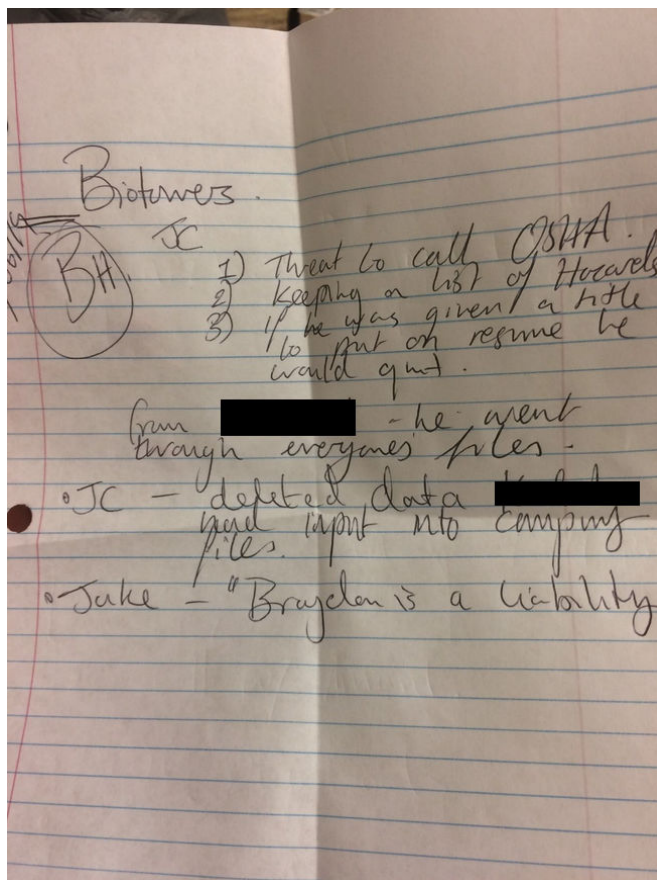 Biotowers.
BH
JC
1) Threat to call OSHA.
2) Keeping a list of Hazards
3) if he was given a title
to put on resume he
would quit.
from - he went
through everyones' files.
• JC - deleted data
had input into company
files.
• Jake - "Braydon is a liability